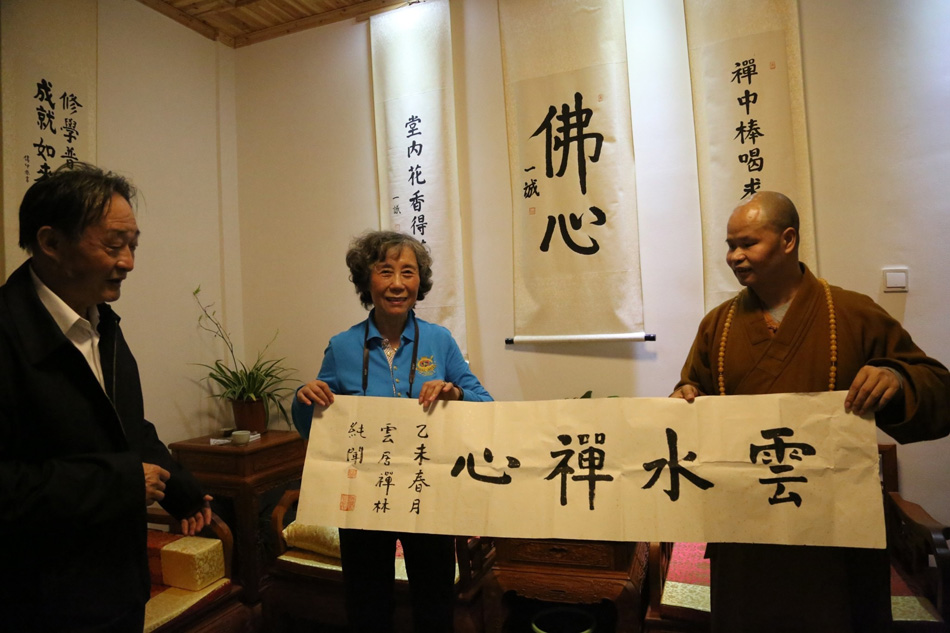 雲水禪心
乙未春月
雲居禪林
純聞
禪中棒喝
佛心
一誠
堂內花香得
一誠
修學普
成就如來